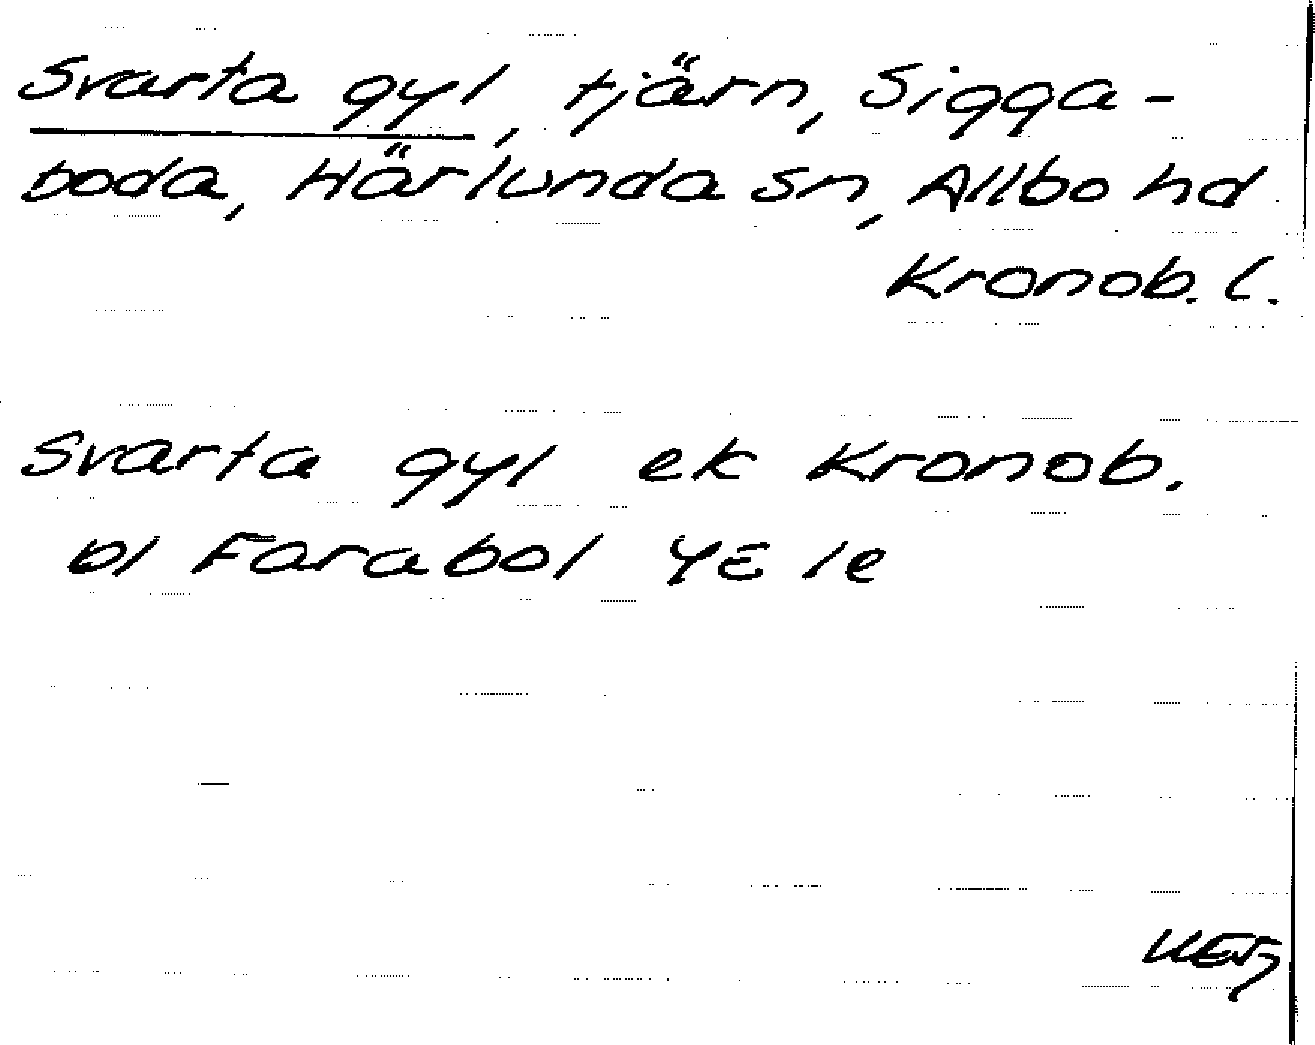 Svarta gyl, tjärn, Sigga-
boda, Härlunda sn, Allbo hd
Kronob. l.
Svarta gyl ek Kronob.
bl Farabol 4E 1e